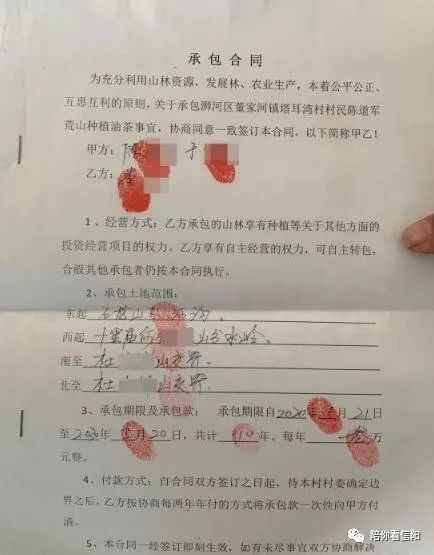 承包合同
为充分利用山林资源，发展林、农业生产，本着公平公正、
互惠互利的原则，关于承包浉河区董家河镇塔耳湾村村民陈道军
荒山种植油茶事宜，协商同意一致签订本合同。以下简称甲乙！
甲方：陈 于
乙方：
1、经营方式：乙方承包的山林享有种植等关于其他方面的
投资经营项目的权力。乙方享有自主经营的权力，可自主转包，
合股其他承包者仍按本合同执行。
2、承包土地范围：
东起 石 山 沟。
西起 山分水岭。
南至 杜 山交界
北至 杜 山交界
3、承包期限及承包款： 承包期限自2020年 月21日
至20 年5月20日，共计 10 年。每年 万
元整。
4、付款方式：自合同双方签订之日起，待本村村委确定边
界之后，乙方按协商每两年年付的方式将承包款一次性向甲方付
清。
5、本合同一经签订即刻生效，如有未尽事宜双方协商解决
陪你看信阳